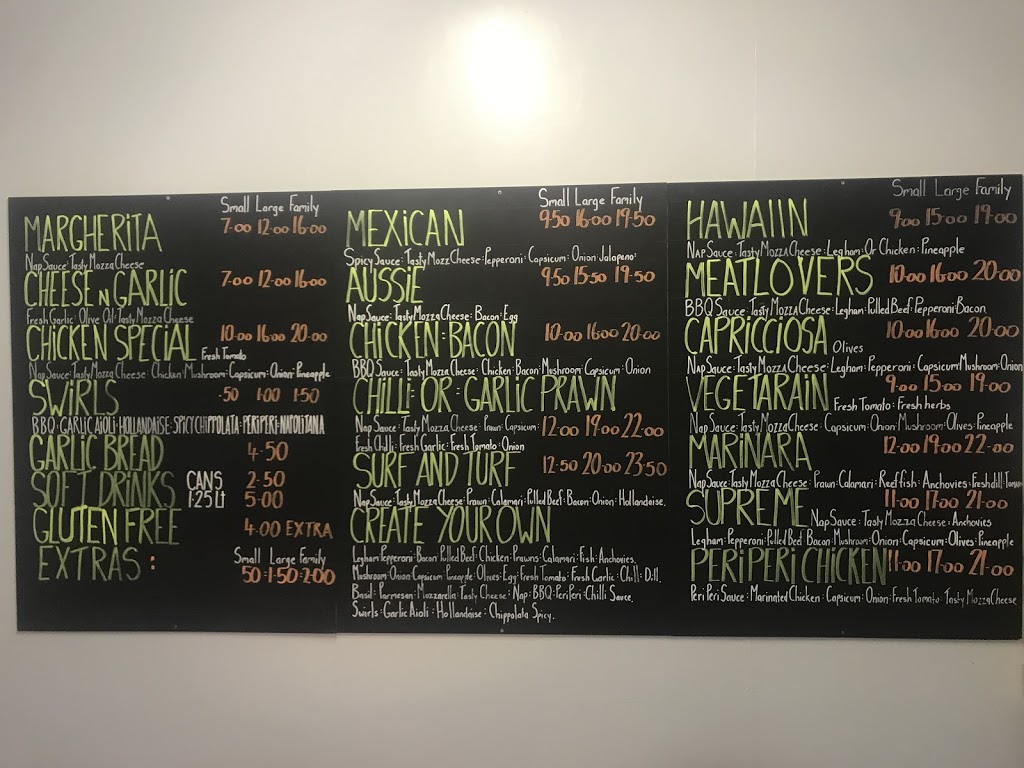 Small Large Family
MARGHERITA 7-00 12-00 16-00
Nap Sauce: Tasty Mozza Cheese
CHEESE N GARLIC 7-00 12-00 16-00
Fresh Garlic: Olive Oil: Tasty Mozza Cheese
CHICKEN SPECIAL Fresh Tomato 10-00 16-00 20-00
Nap Sauce: Tasty Mozza Cheese: Chicken: Mushroom: Capsicum: Onion: Pineapple
SWIRLS -50 1-00 1-50
BBQ: GARLIC AIOLI: HOLLANDAISE: SPICY CHIPPOLATA: PERI PERI: NAPOLITANA
GARLIC BREAD 4-50
SOFT DRINKS CANS 2-50
1-25 Lt 5-00
GLUTEN FREE 4-00 EXTRA
Small Large Family
EXTRAS: 50-1-50-2-00
Small Large Family
MEXICAN 9-50 16-00 19-50
Spicy Sauce: Tasty Mozz Cheese: Pepperoni: Capsicum: Onion: Jalapeno:
AUSSIE 9-50 15-50 19-50
Nap Sauce: Tasty Mozza Cheese: Bacon: Egg
CHICKEN-BACON 10-00 16-00 20-00
BBQ Sauce: Tasty Mozza Cheese: Chicken: Bacon: Mushroom: Capsicum: Onion
CHILLI-OR-GARLIC PRAWN
Nap Sauce: Tasty Mozza Cheese: Prawn: Capsicum: 12-00 19-00 22-00
Fresh Chilli: Fresh Garlic: Fresh Tomato: Onion
SURF AND TURF 12-50 20-00 23-50
Nap Sauce: Tasty Mozza Cheese: Prawn: Calamari: Pulled Beef: Bacon: Onion: Hollandaise.
CREATE YOUR OWN
Legham: Pepperoni: Bacon: Pulled Beef: Chicken: Prawns: Calamari: Fish: Anchovies.
Mushroom: Onion: Capsicum: Pineapple: Olives: Egg: Fresh Tomato: Fresh Garlic: Chilli: Dill.
Basil: Parmesan: Mozzarella: Tasty Cheese: Nap: BBQ: Peri Peri: Chilli Sauce.
Swirls: Garlic Aioli: Hollandaise: Chippolata Spicy.
Small Large Family
HAWAIIN 9-00 15-00 19-00
Nap Sauce: Tasty Mozza Cheese: Legham: Or Chicken: Pineapple
MEATLOVERS 10-00 16-00 20-00
BBQ Sauce: Tasty Mozza Cheese: Legham: Pulled Beef: Pepperoni: Bacon
CAPRICCIOSA Olives 10-00 16-00 20-00
Nap Sauce: Tasty Mozza Cheese: Legham: Pepperoni: Capsicum: Mushroom: Onion
VEGETARAIN Fresh Tomato: Fresh herbs 9-00 15-00 19-00
Nap Sauce: Tasty Mozza Cheese: Capsicum: Onion: Mushroom: Olives: Pineapple
MARINARA 12-00 19-00 22-00
Nap Sauce: Tasty Mozza Cheese: Prawn: Calamari: Reef fish: Anchovies: Fresh dill:
SUPREME Nap Sauce: Tasty Mozza Cheese: Anchovies 11-00 17-00 21-00
Legham: Pepperoni: Pulled Beef: Bacon: Mushroom: Onion: Capsicum: Olives: Pineapple
PERI PERI CHICKEN 11-00 17-00 21-00
Peri Peri Sauce: Marinated Chicken: Capsicum: Onion: Fresh Tomato: Tasty Mozza Cheese